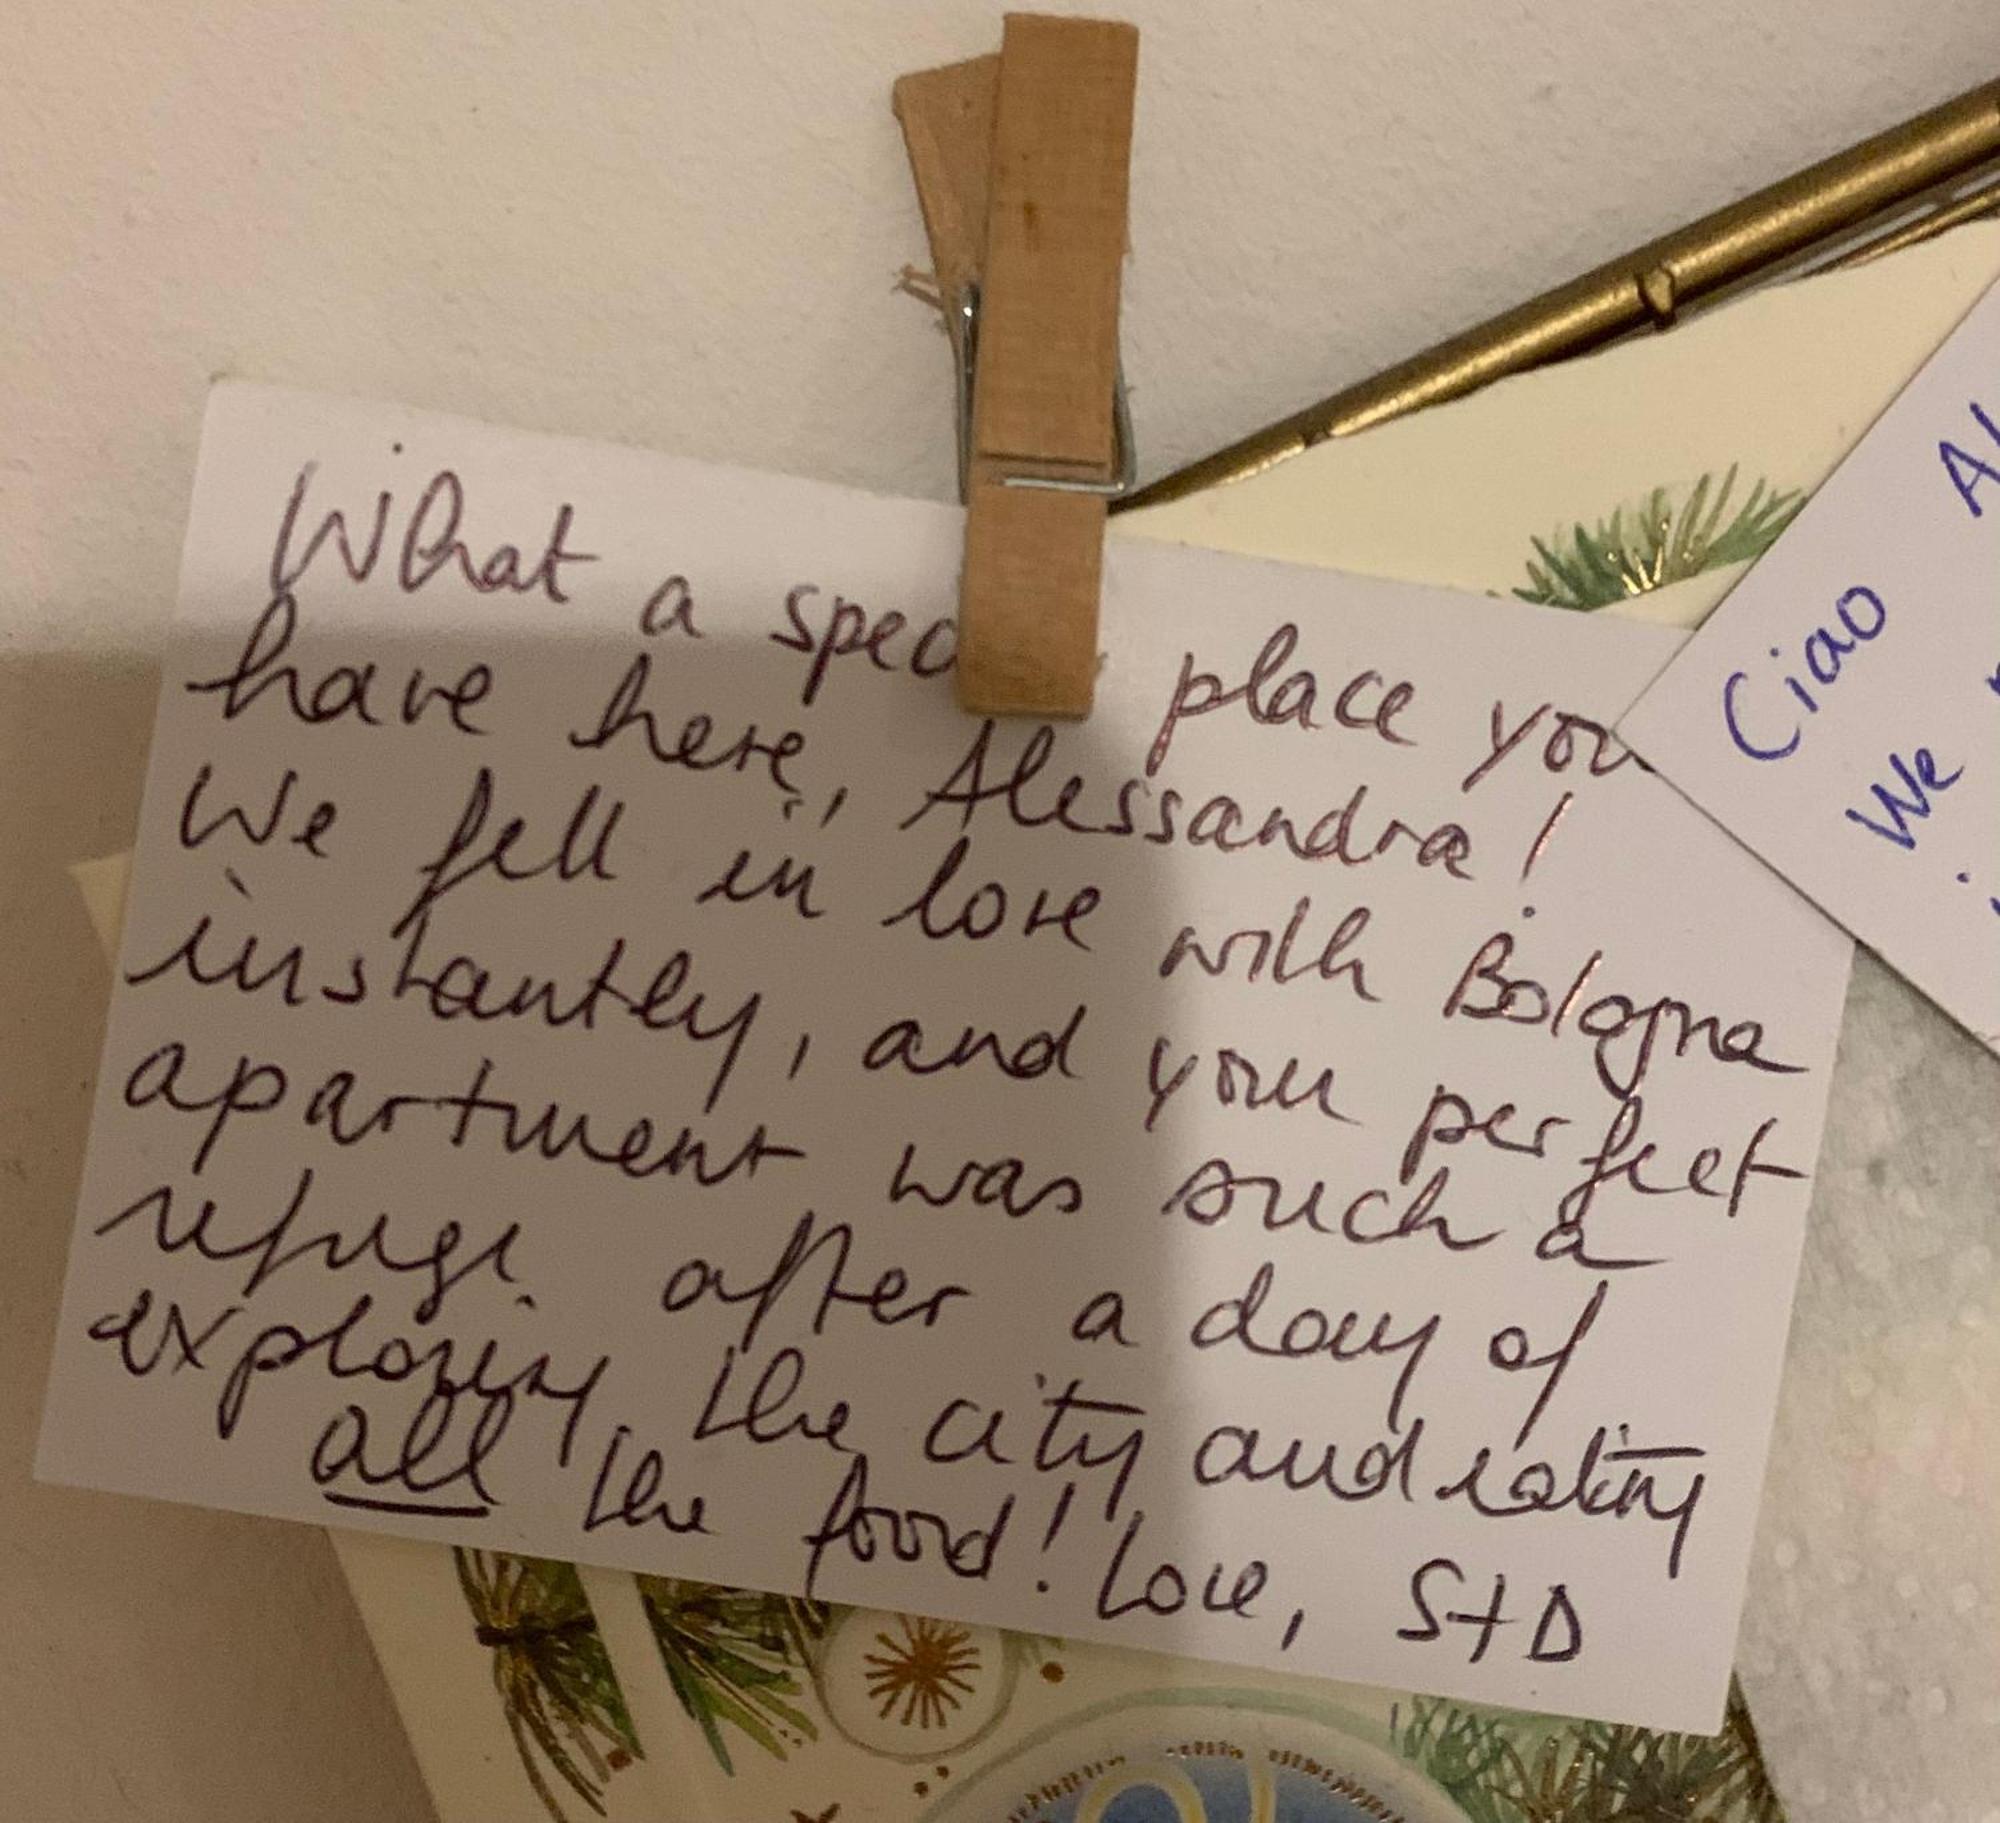 What a spec place you
have here, Alessandra!
We fell in love with Bologna
instantly, and your perfect
apartment was such a
refuge after a day of
exploring the city and eating
all the food! Love, S+D
Ciao Al
We